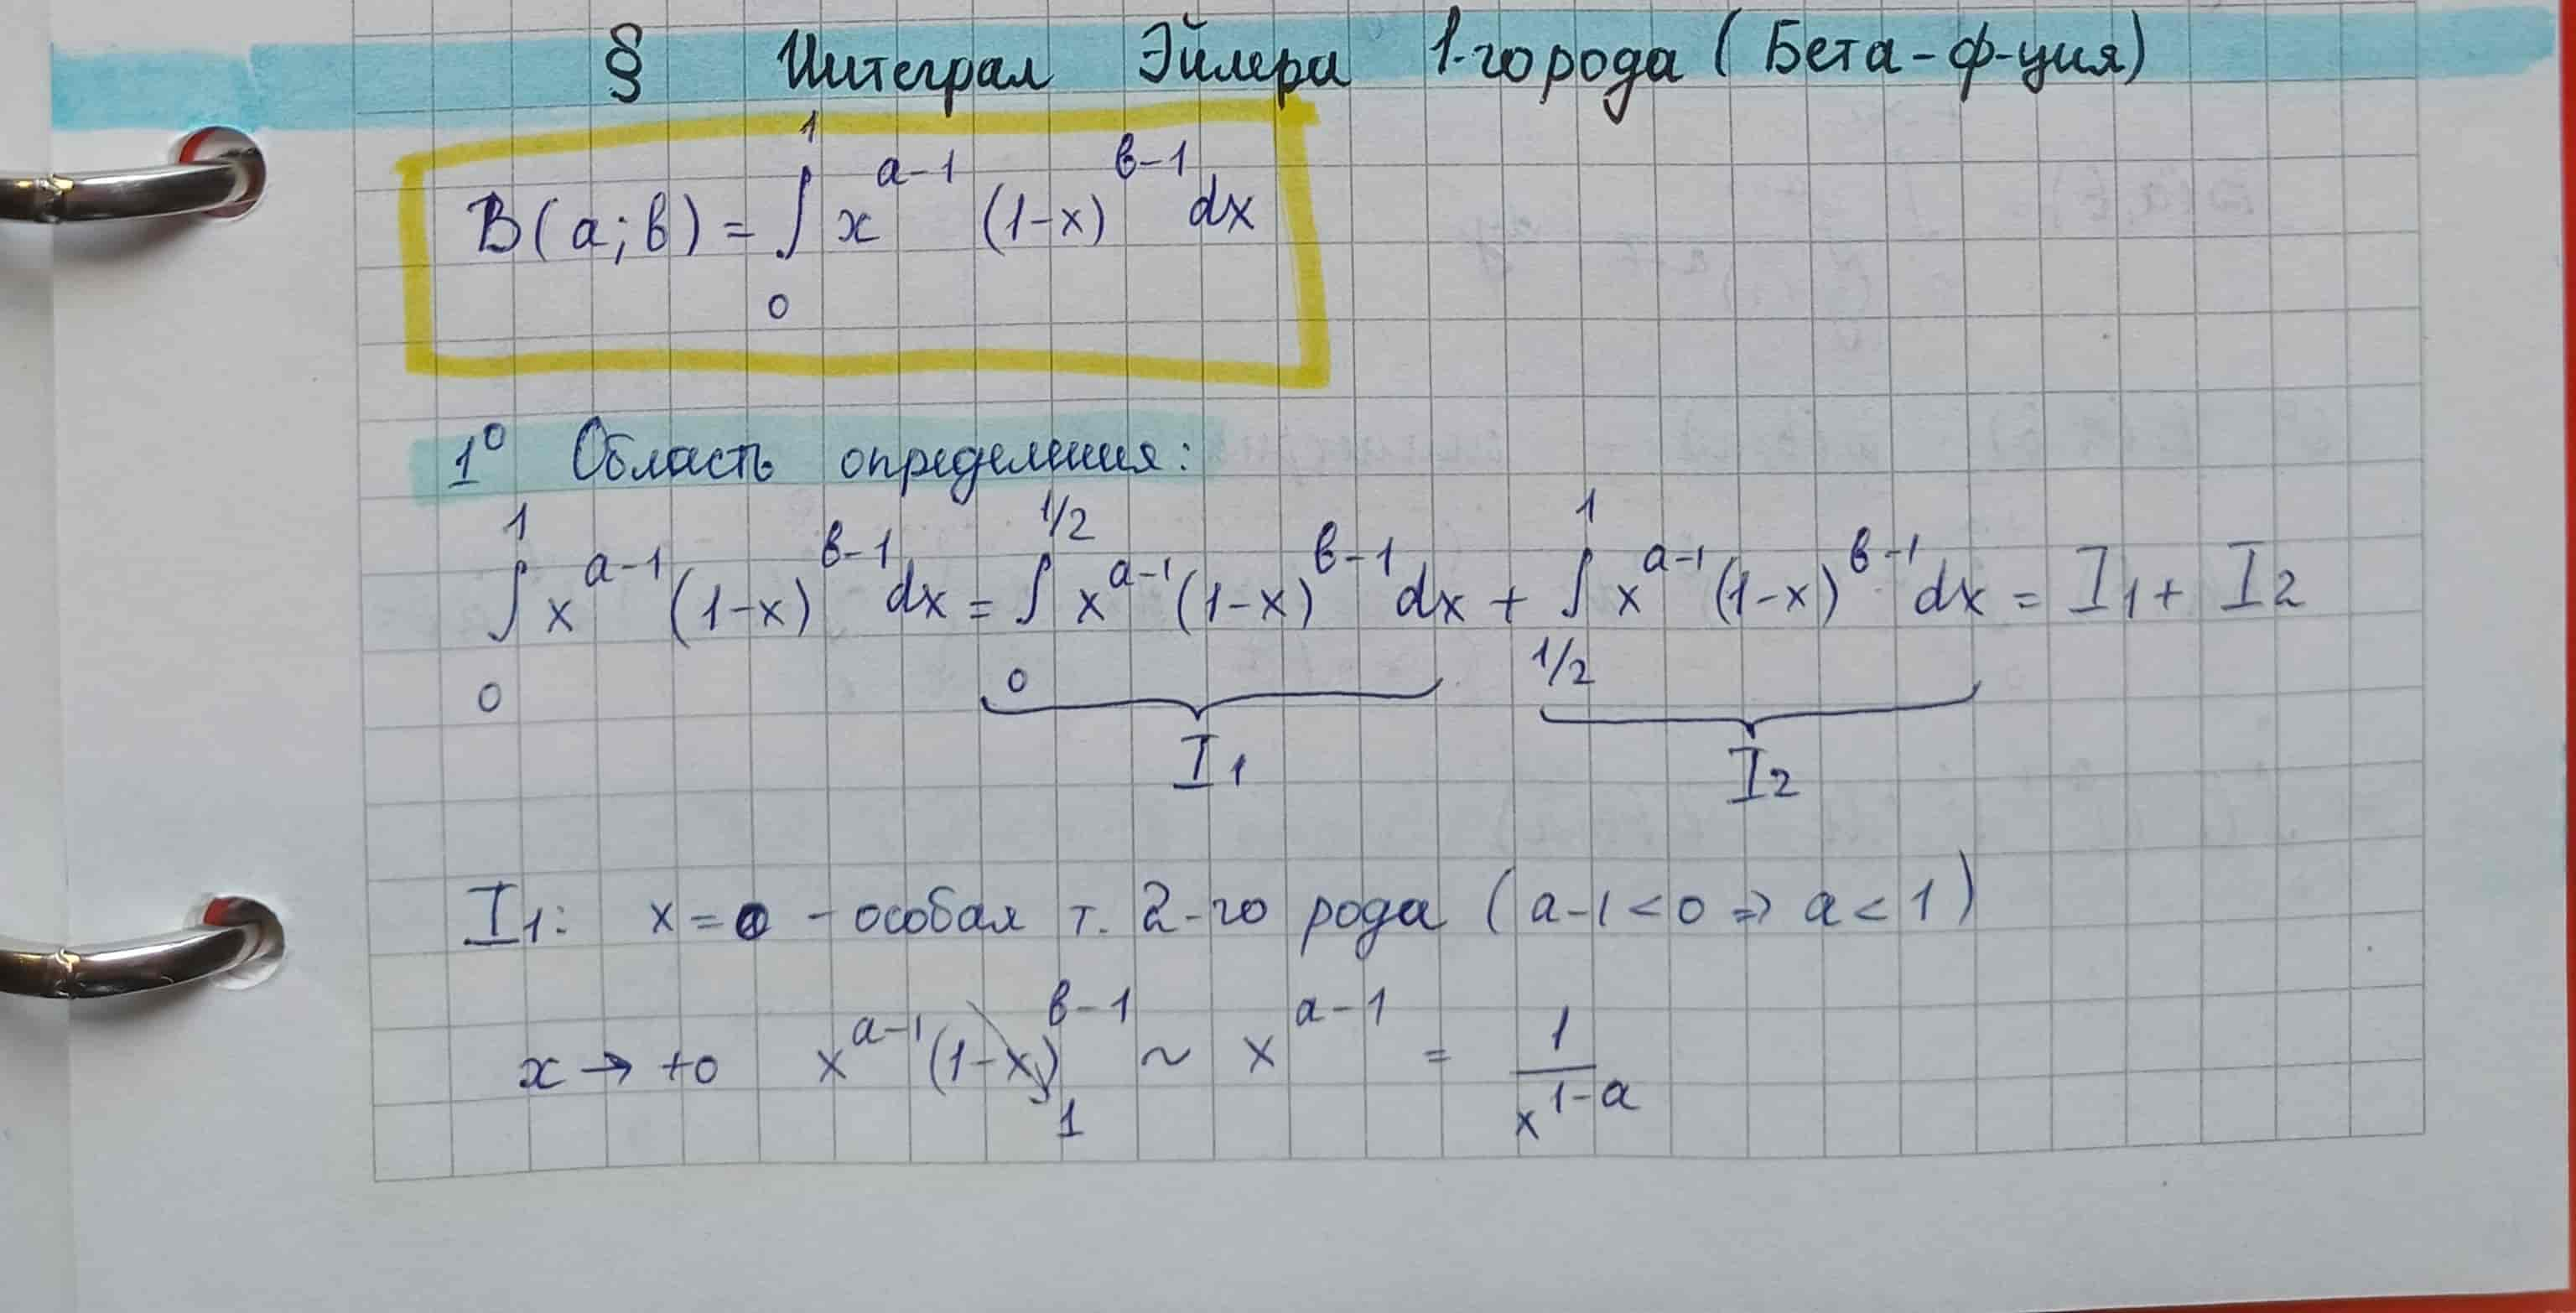 § Интеграл Эйлера 1-го рода (Бета-ф-ция)
B(a;b) = ∫₀¹ x^(a-1) (1-x)^(b-1) dx
1° Область определения:
∫₀¹ x^(a-1) (1-x)^(b-1) dx = ∫₀^(1/2) x^(a-1) (1-x)^(b-1) dx + ∫_(1/2)^1 x^(a-1) (1-x)^(b-1) dx = I₁ + I₂
I₁ I₂
I₁: x = 0 - особая т. 2-го рода (a-1<0 ⇒ a<1)
x → +0 x^(a-1) (1-x)^(b-1) 1 ~ x^(a-1) = 1/x^(1-a)